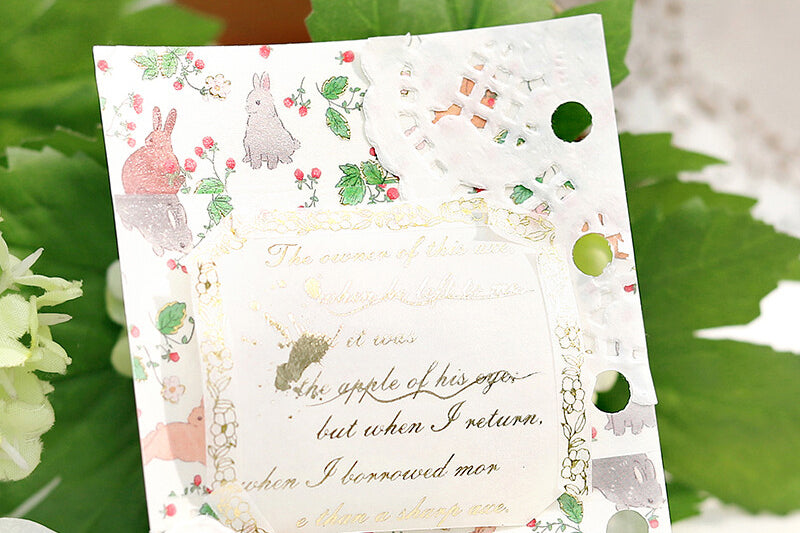 The owner of this axe
and it was
the apple of his eye.
but when I return.
when I borrowed mor
e than a sharp axe.